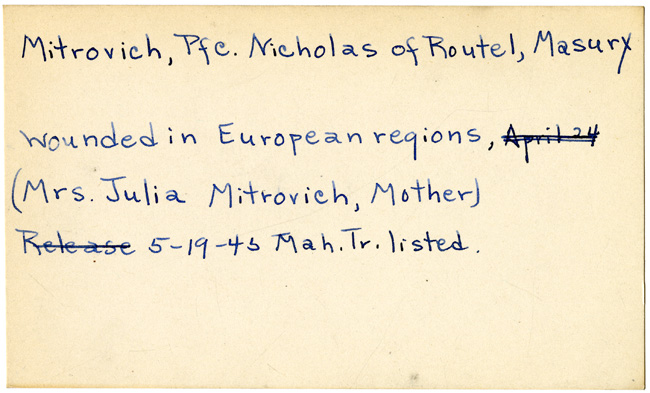 Mitrovich, Pfc. Nicholas of Route1, Masury
Wounded in European regions, April 24
(Mrs. Julia Mitrovich, Mother)
Release 5-19-45 Mah. Tr. listed.